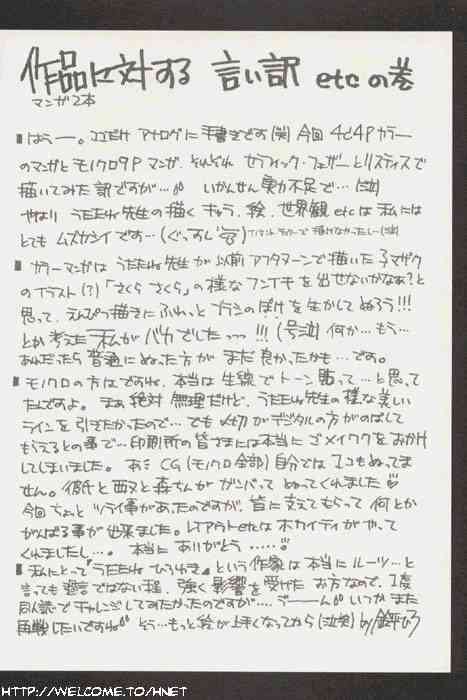 作品に対する 言い訳 etcの巻
マンガ2本
■はぅー。ココだけ アナログに 手書きです(笑) 今回 4C4P カラー
のマンガと モノクロ9P マンガ、それぞれ セラフィック・フェザーとリスティスで
描いてみた訳ですが…。いかんせん 実力不足で…(泣)
やはり うたたね先生の描く キャラ、絵、世界観 etcは 私には
とても ムズカシイです…(ぐっすし)
■カラーマンガは うたたね先生が 以前 アフタヌーンで描いた
のイラスト(?)「さくら さくら」の様な フンイキ を出せないかなぁ?と
思って、えんぴつ描きに ふわっと ブラシのぼけを生かして ぬろう!!!
とか 考えた 私が バカでしたっっっ!!!(号泣) 何か…もう…
あれだったら 普通に ぬった方が まだ 良かったかも…です。
■モノクロの方はですね、本当は 生線で トーン 貼って…と思って
たんですよ。まぁ 絶対 無理だけど、うたたね先生の 様な 美しい
ラインを 引きたかったので…でも 〆切が デジタルの方がのばして
もらえるとの事で…印刷所の 皆さまには本当に ゴメイワクを おかけ
してしまいました。あぅ CG(モノクロ全部) 自分では 1コもぬってま
せん。 と 西又と 森ちんが ガンバって ぬってくれました
今回 ちょっと ツライ事があったのですが、皆に 支えてもらって 何とか
がんばる事が 出来ました。レイアウトetcは ホカイティがやって
くれましたし…。本当に ありがとう……
■私にとって『うたたね ひろゆき』という作家は 本当に ルーツ…と
言っても 過言ではない程、強く 影響を受けた お方なので、1度
同人誌で チャレンジしてみたかったのですが…。うーーん いつか また
再戦したいですね そぅ…もっと 絵が上手くなってから(泣笑) by
HTTP://WELCOME.TO/HNET